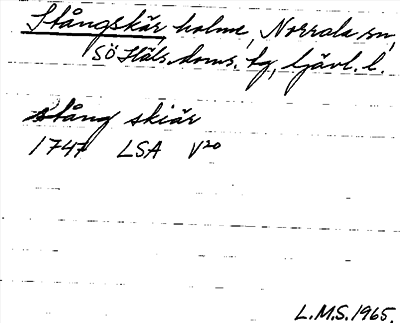 Stångskär holme, Norrala sn,
SÖ Häls. doms. tg, Gävl. l.
stång skiär
1747 LSA V20
L.M.S. 1965.